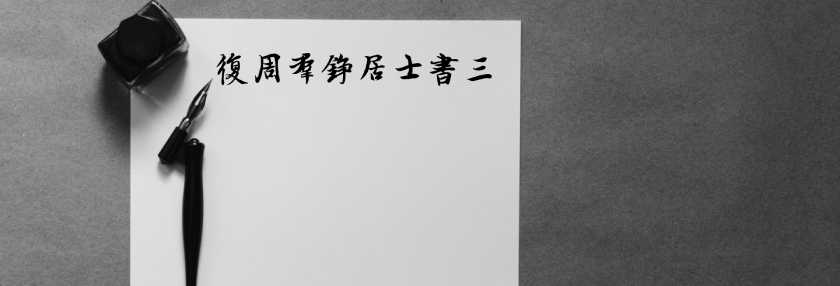 復周羣錚居士書三